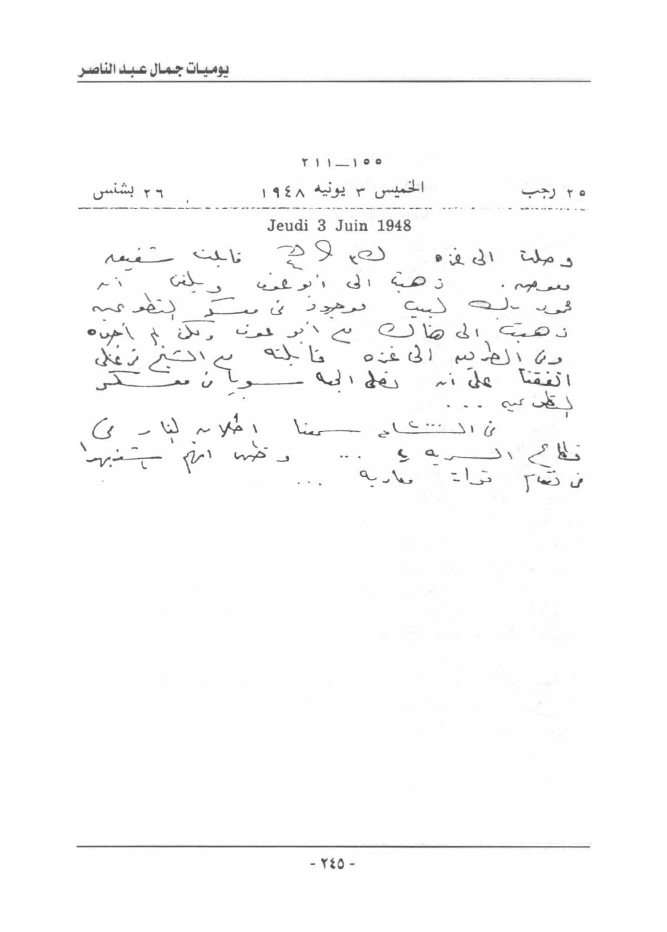 يوميات جمال عبد الناصر
٢١١—١٥٥
٢٥ رجب الخميس ٣ يونيه ١٩٤٨ ٢٦ بشنس
Jeudi 3 Juin 1948
وصلت الى غزه قابلت
ذهبت الى ابو عوف انه
محمود بك لبيب موجود فى معسكر المتطوعين
ذهبت الى هناك مع ابو عوف ولكن لم أجده
وفى الطريق الى غزه قابلته مع الشيخ فرغلى
اتفقنا على ان نصلى الجمعه سويا فى معسكر
المتطوعين ...
فى المساء سمعنا اطلاق النار فى
قطاع السريه ٤ ... وظهر انهم اشتبهوا
فى تقدم قوات معاديه ...
- ٢٤٥ -